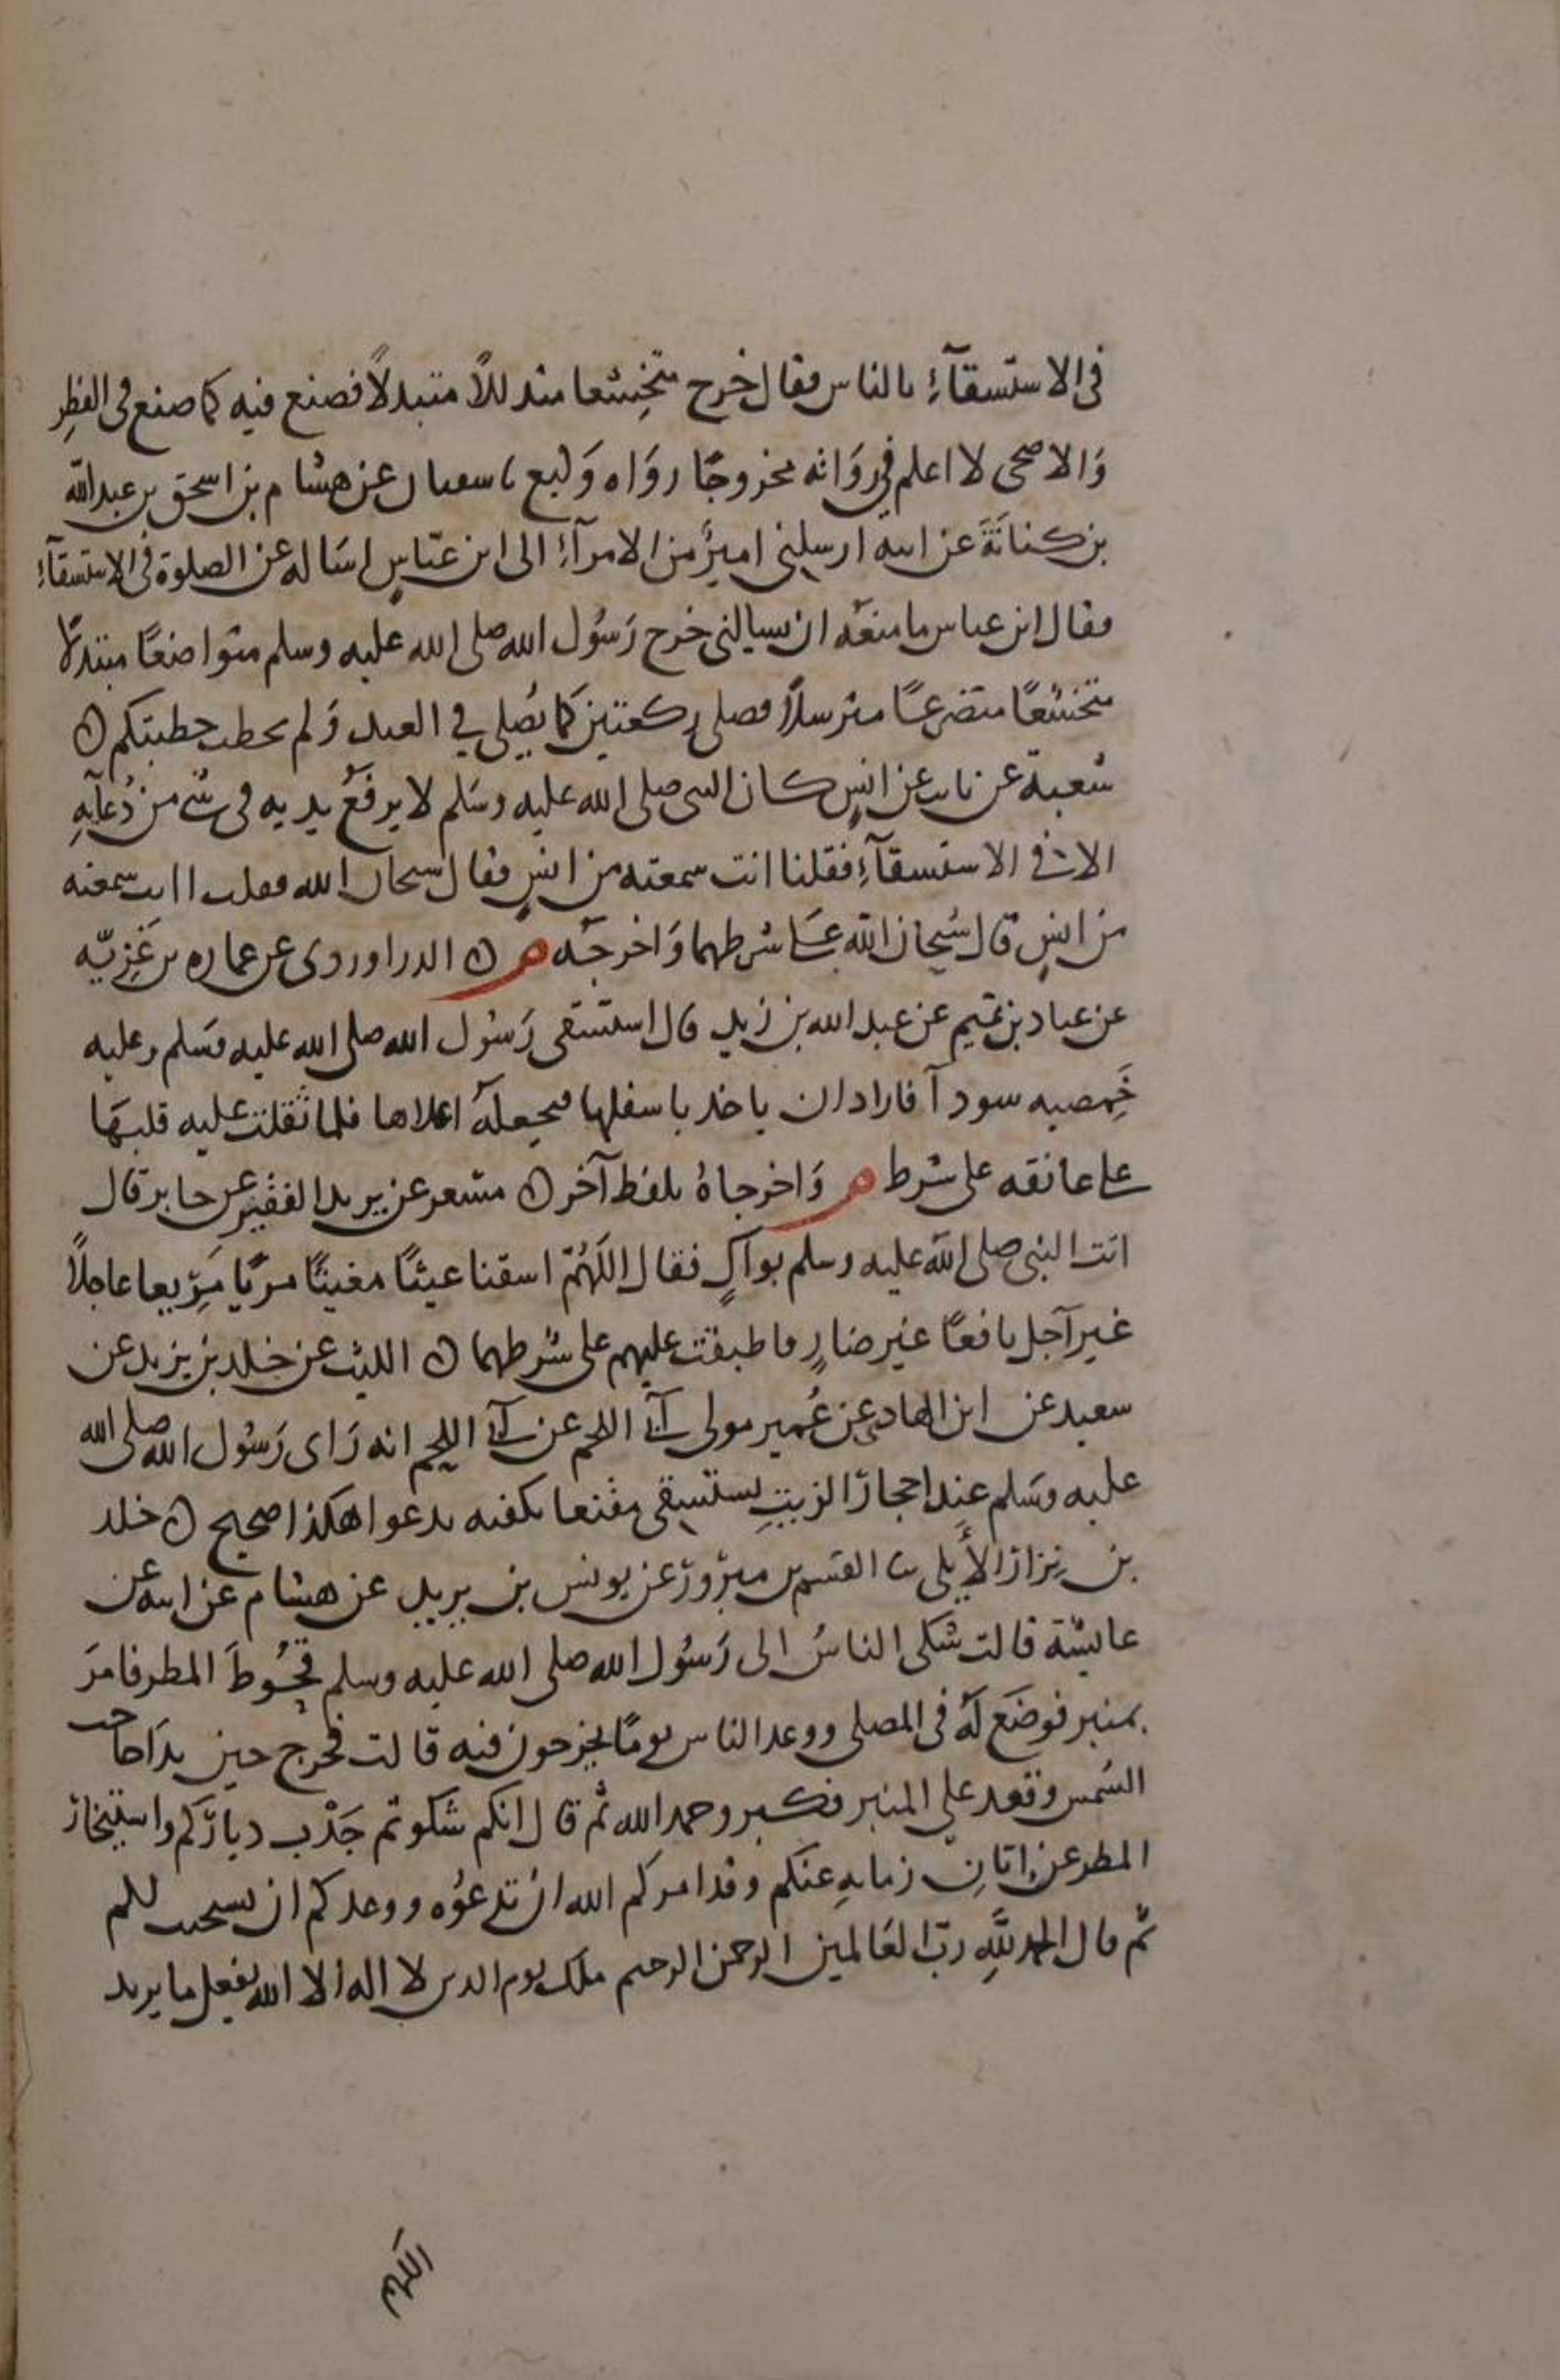 فى الاستسقآءِ بالناس فقال خرج متخشعا متذللاً متبذلاً فصنع فيه كما صنع فى الفطر
وَالاضحى لا اعلم فى رواته مجروحًا رواه وَكيع ثنا سفيان عن هشام بن اسحق بن عبد الله
بن كنانَةَ عن ابيه ارسلنى اميرٌ من الامرآءِ الى ابن عبّاسٍ اساله عن الصلوة فى الاستسقآءِ
فقال ابن عباس ما منعَه ان يسالنى خرج رَسُول الله صلى الله عليه وسلم متواضعًا متبذلاً
متخشعًا متضرعًا مترسلاً فصلى ركعتين كما يُصلى في العيد وَلم يخطب خطبتكم ن
شعبة عن ثابت عن انسٍ كان النبى صلى الله عليه وسَلم لا يرفعُ يديه فى شئ من دُعآيهِ
الا فى الاستسقآءِ فقلنا انت سمعته من انسٍ فقال سبحان الله فقلت اانت سمعته
من انسٍ قال سُبحان الله عَلى شرطهما وَاخرجَه م ن الدراوردى عن عماره بن غَزِيّه
عن عباد بن تميم عن عبد الله بن زيد قال استسقى رَسُول الله صلى الله عليه وَسَلم وعليه
خَمِصيه سودآ فاراد ان ياخذ باسفلها فيجعلَه اعلاها فلما ثقلت عليه قلبهَا
على عاتقه على شرط م وَاخرجاهُ بلفظ آخر ن مسعر عن يزيد الفقير عن جابر قال
اتت النبى صلى الله عليه وسلم بواكٍ فقال اللَهُمّ اسقنا غيثًا مغيثًا مريًا مَرِيعا عاجلاً
غير آجل نافعًا غير ضارٍ فاطبقت عليهم على شرطهما ن الليث عن خلد بن يزيد عن
سعيد عن ابن الهاد عن عُمير مولى آبي اللحم عن آبي اللحم انه رَاى رَسُول الله صلى الله
عليه وسَلم عند احجار الزيتِ يستسقى مقنعا بكفيه يدعوا هكذا صحيح ن خلد
بن نِزار الأَيلى ثنا القسم بن مبرور عن يونس بن يزيد عن هشام عن ابيه عن
عايشة قالت شكى الناسُ الى رَسُول الله صلى الله عليه وسلم قحُوطَ المطر فامَر
بمنبر فوضَع لهُ فى المصلى ووعد الناس يومًا يخرجون فيه قالت فخرج حين بدَا حاجب
الشمس وقعد على المنبر فكبر وحمد الله ثم قال انكم شكوتم جَدْب دياركم واستيخار
المطر عن اِبّانِ زمانهِ عنكم وقد امركم الله ان تدعُوه ووعدكم ان يستجيب لكم
ثم قال الحمد للهِ ربّ العَالمين الرحمن الرحيم ملك يوم الدين لا اله الا الله يفعل ما يريد
اللَهم